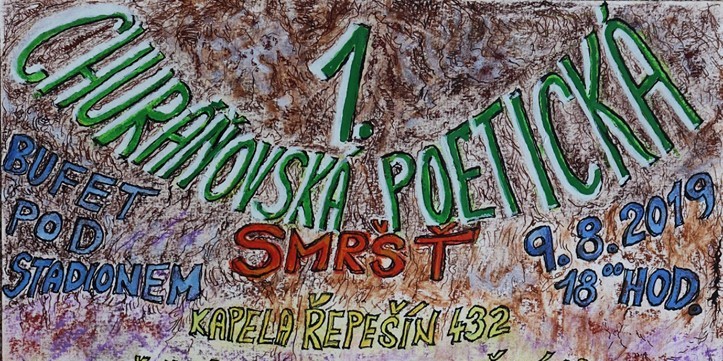 1.
CHURÁŇOVSKÁ POETICKÁ
SMRŠŤ
BUFET
POD
STADIONEM
9.8.2019
18⁰⁰ HOD.
KAPELA ŘEPEŠÍN 432